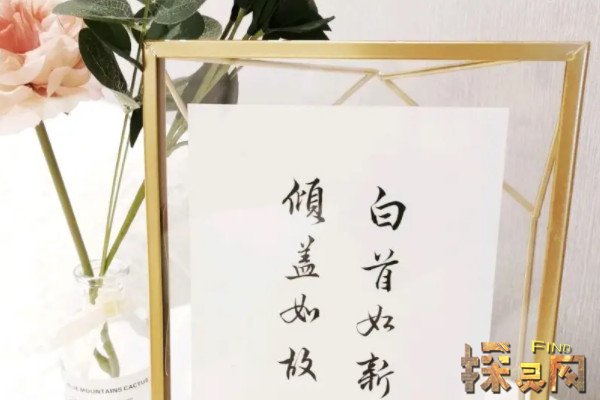 白首如新
倾盖如故
BLUE MOUNTAINS CACTUS
FIND
探灵网